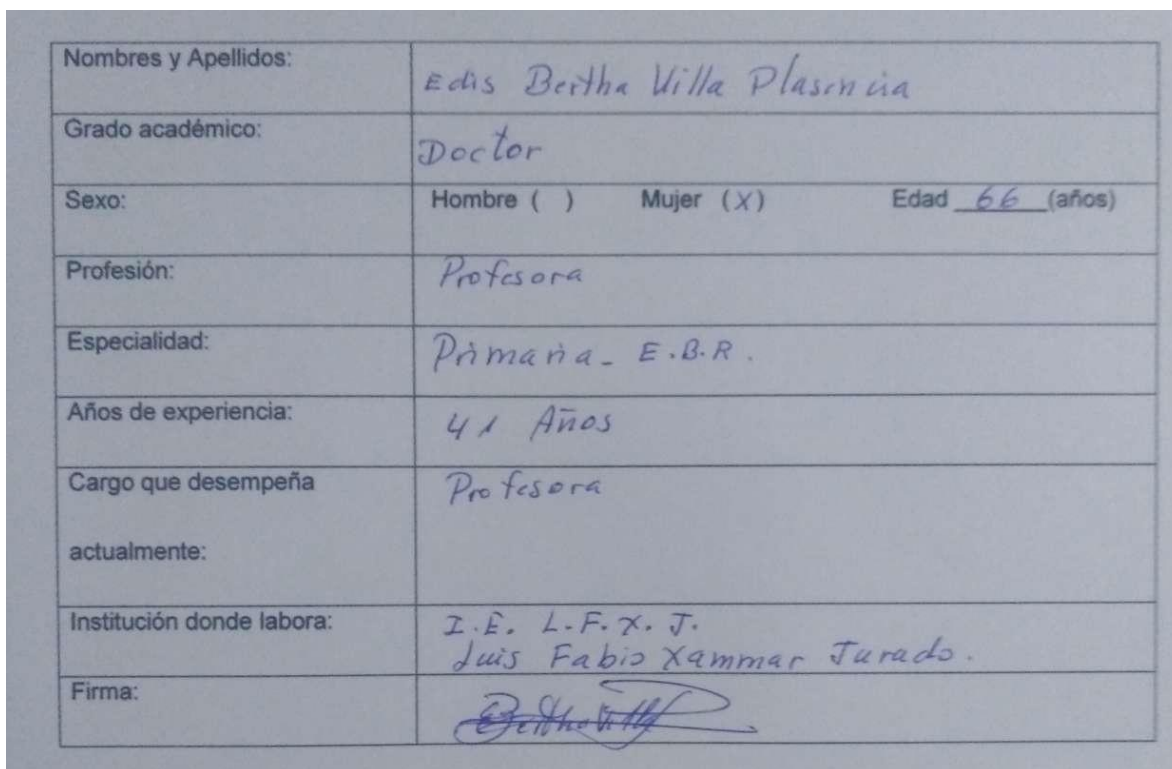 Nombres y Apellidos:
Edis Bertha Villa Plasencia
Grado académico:
Doctor
Sexo:
Hombre ( ) Mujer (X) Edad 66 (años)
Profesión:
Profesora
Especialidad:
Primaria - E.B.R.
Años de experiencia:
41 Años
Cargo que desempeña
actualmente:
Profesora
Institución donde labora:
I.E. L.F.X.J.
Luis Fabio Xammar Jurado.
Firma:
Bertha Villa